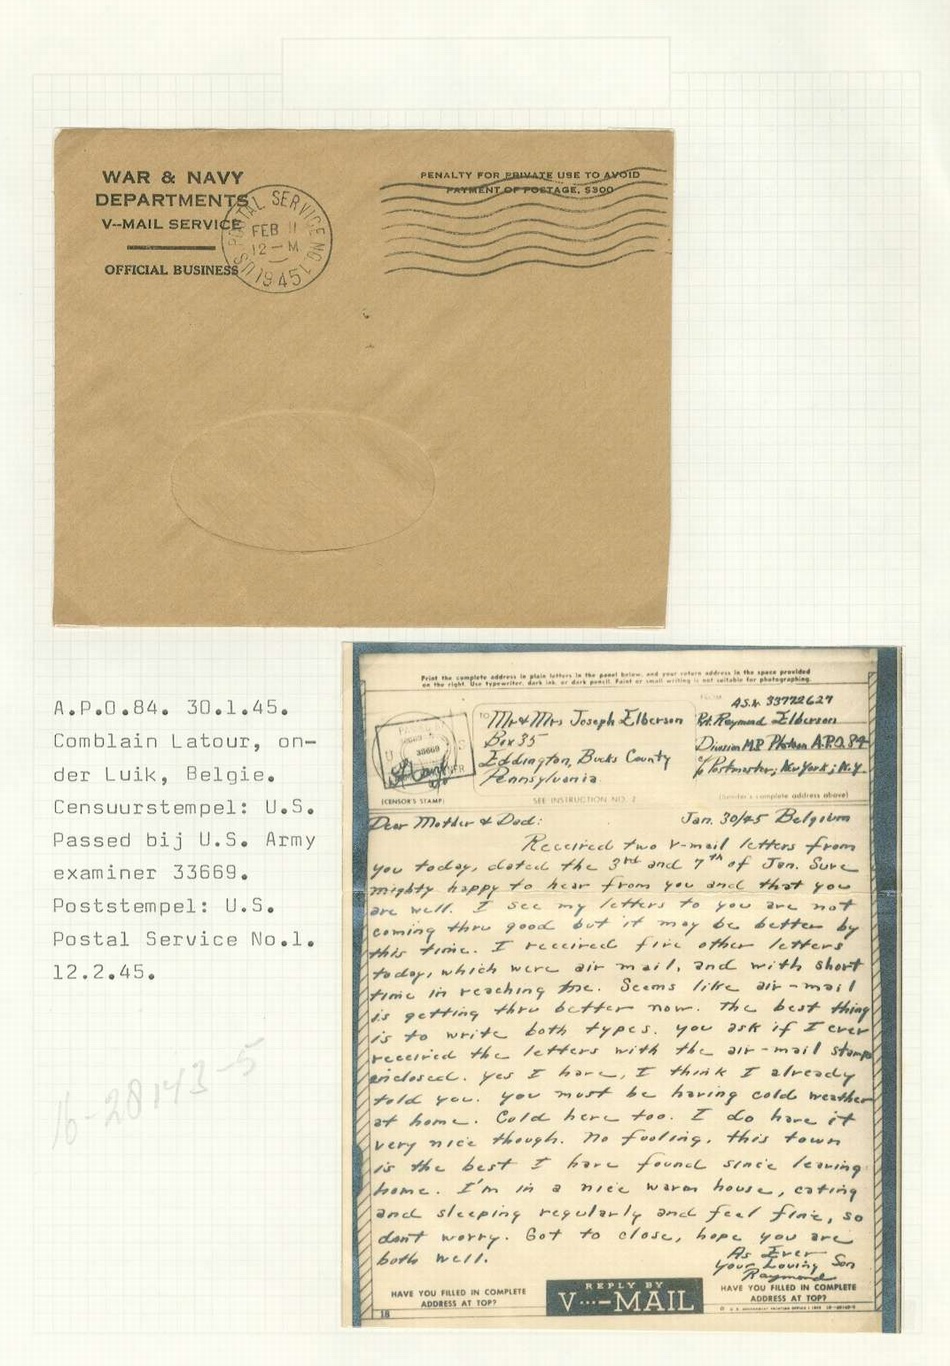 WAR & NAVY
DEPARTMENTS
V--MAIL SERVICE
OFFICIAL BUSINESS
U.S. POSTAL SERVICE NO. 1
FEB 11
12 - M
1945
PENALTY FOR PRIVATE USE TO AVOID
PAYMENT OF POSTAGE, $300
A.P.O.84. 30.1.45.
Comblain Latour, on-
der Luik, Belgie.
Censuurstempel: U.S.
Passed bij U.S. Army
examiner 33669.
Poststempel: U.S.
Postal Service No.1.
12.2.45.
16-28143-5
Print the complete address in plain letters in the panel below, and your return address in the space provided
on the right. Use typewriter, dark ink, or dark pencil. Faint or small writing is not suitable for photographing.
33669
(CENSOR'S STAMP)
TO
Mr & Mrs Joseph Elberson
Box 35
Eddington, Bucks County
Pennsylvania
SEE INSTRUCTION NO. 2
FROM
A.S.N. 33772627
Pvt. Raymond Elberson
Division M.P. Platoon A.P.O. 84
c/o Postmaster, New York, N.Y.
(Sender's complete address above)
Dear Mother & Dad: Jan. 30/45 Belgium
Received two V-mail letters from
you today, dated the 3rd and 7th of Jan. Sure
mighty happy to hear from you and that you
are well. I see my letters to you are not
coming thru good but it may be better by
this time. I received five other letters
today, which were air mail, and with short
time in reaching me. Seems like air-mail
is getting thru better now. The best thing
is to write both types. You ask if I ever
received the letters with the air-mail stamps
enclosed. Yes I have, I think I already
told you. You must be having cold weather
at home. Cold here too. I do have it
very nice though. No fooling, this town
is the best I have found since leaving
home. I'm in a nice warm house, eating
and sleeping regularly and feel fine, so
don't worry. Got to close, hope you are
both well.
As Ever
Your Loving Son
Raymond
HAVE YOU FILLED IN COMPLETE
ADDRESS AT TOP?
REPLY BY
V···—MAIL
HAVE YOU FILLED IN COMPLETE
ADDRESS AT TOP?
18